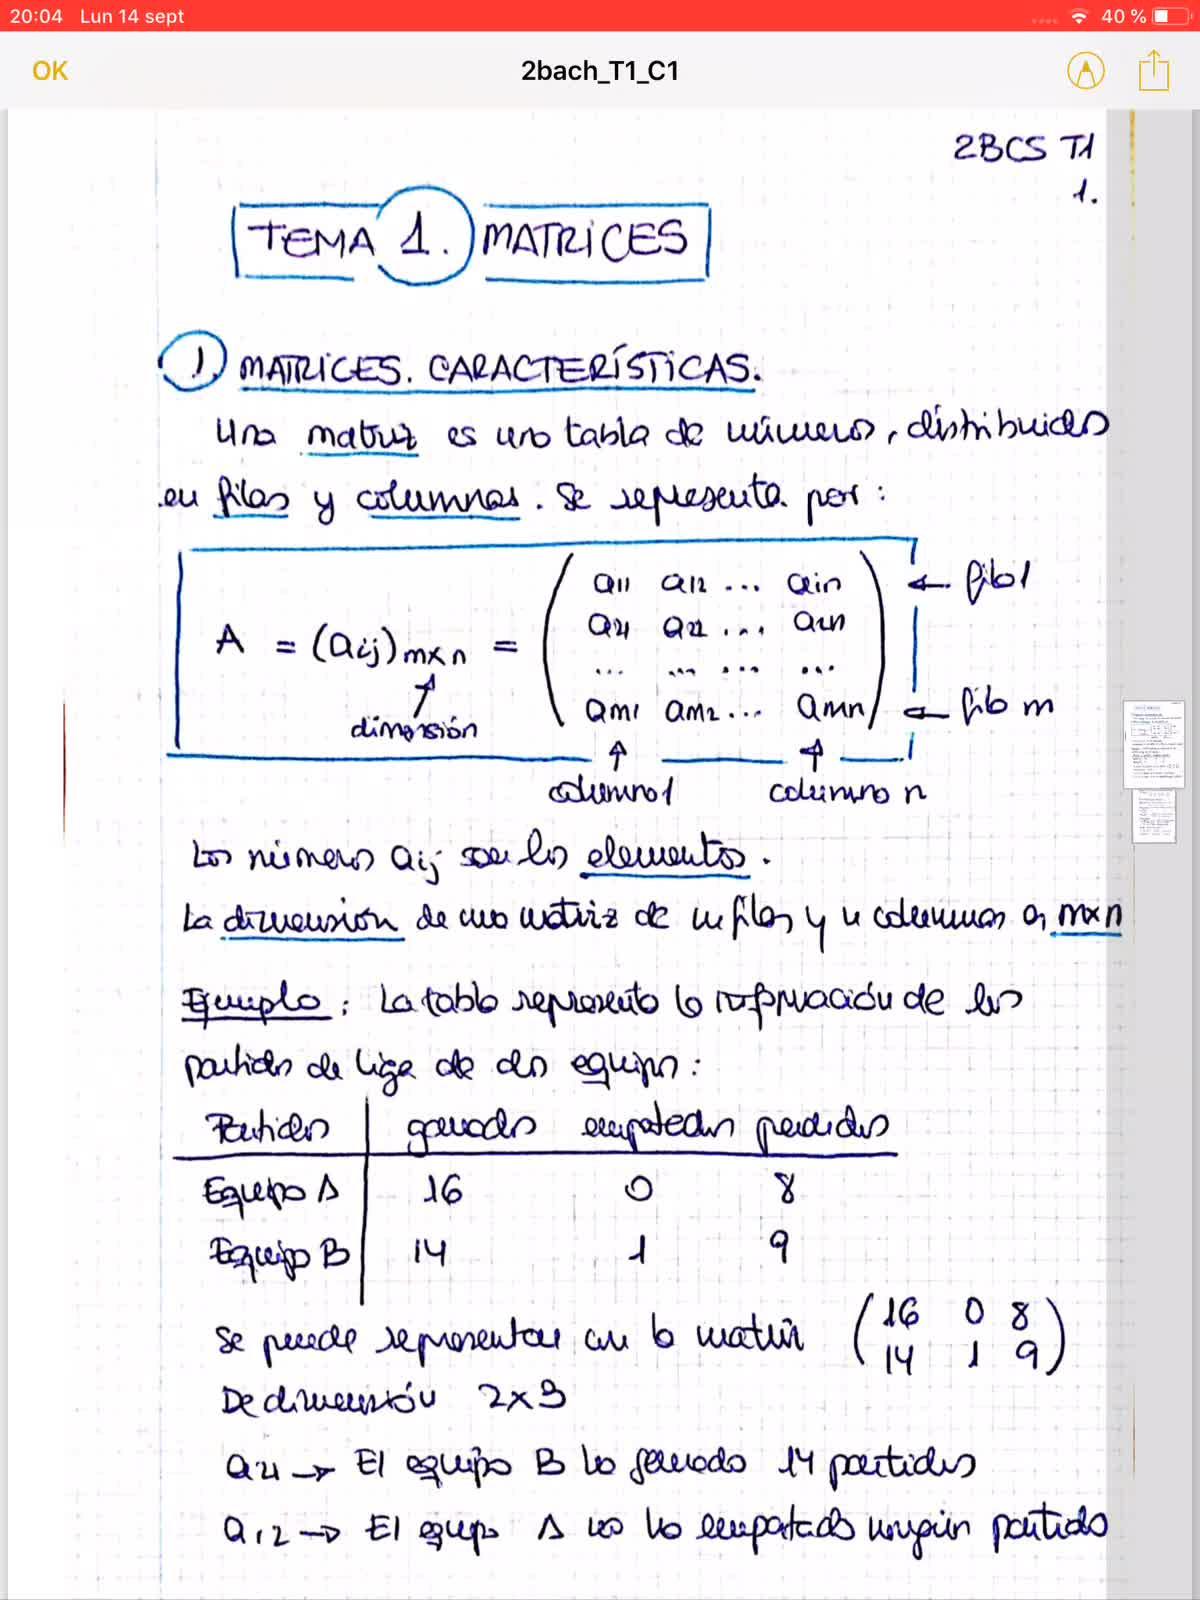 20:04 Lun 14 sept 40 %
OK 2bach_T1_C1
2BCS T1
1.
TEMA 1. MATRICES
1. MATRICES. CARACTERÍSTICAS.
Una matriz es una tabla de números, distribuidos
en filas y columnas. Se representa por:
a11 a12 ... a1n ← fila 1
a21 a22 ... a2n
A = (aij)mxn =
... ... ... ...
am1 am2 ... amn ← fila m
↑ dimensión
↑ ↑
columna 1 columna n
Los números aij son los elementos.
La dimensión de una matriz de m filas y n columnas es mxn
Ejemplo: La tabla representa la información de los
partidos de liga de dos equipos:
Partidos ganados empatados perdidos
Equipo A 16 0 8
Equipo B 14 1 9
Se puede representar con la matriz (16 0 8
14 1 9)
De dimensión 2x3
a21 → El equipo B ha ganado 14 partidos
a12 → El equipo A no ha empatado ningún partido